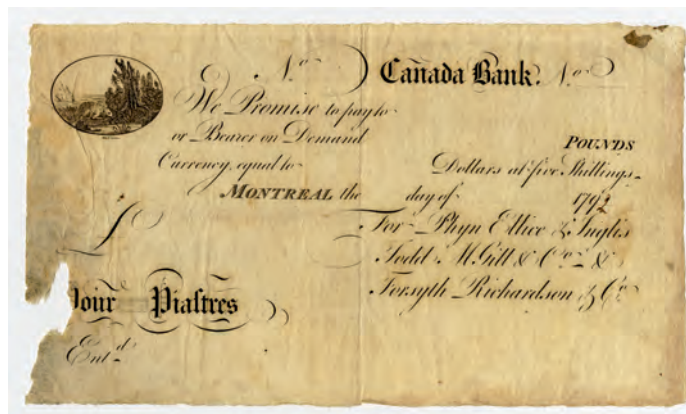 No Canada Bank. No
We Promise to pay to
or Bearer on Demand
POUNDS
Currency, equal to Dollars at five Shillings
MONTREAL the day of 1792
£ For Phyn Ellice & Inglis
Todd McGill & Co. &
Forsyth Richardson & Co.
Pour Piastres
Entd.